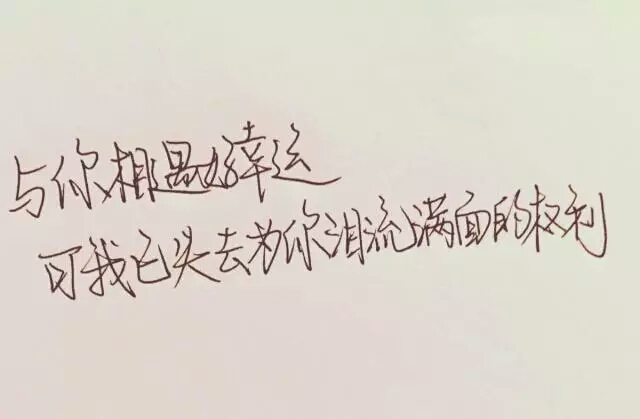 与你相遇好幸运
可我已失去为你泪流满面的权利